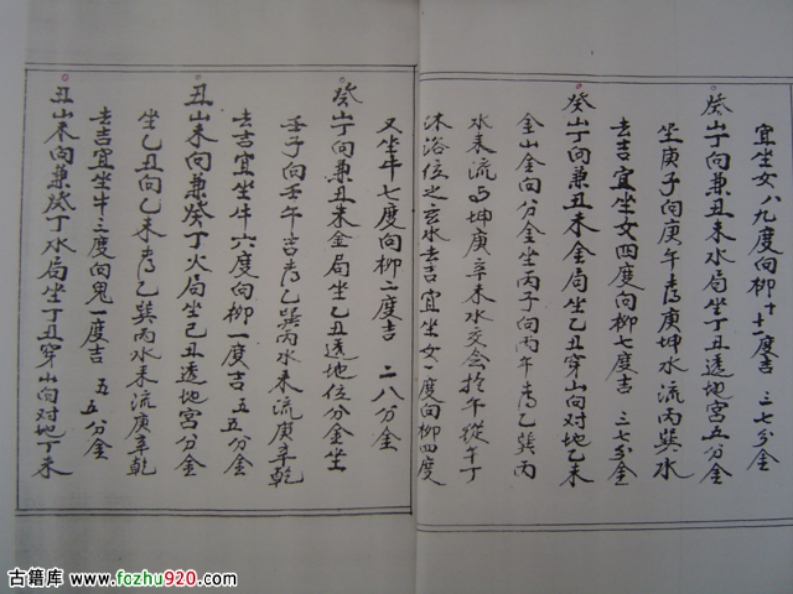 宜坐女八九度向柳十十一度吉 三七分金
癸山丁向兼丑未水局坐丁丑透地宮五分金
坐庚子向庚午喜庚坤水流丙巽水
去吉宜坐女四度向柳七度吉 三七分金
癸山丁向兼丑未金局坐乙丑穿山向对地乙未
金山金向分金坐丙子向丙午喜乙巽丙
水来流与坤庚辛未水交会於午從午丁
沐浴位之玄水去吉宜坐女一度向柳四度
又坐牛七度向柳二度吉 二八分金
癸山丁向兼丑未金局坐乙丑透地位分金坐
壬子向壬午吉喜乙巽丙水来流庚辛乾
去吉宜坐牛六度向柳一度吉 五五分金
丑山未向兼癸丁火局坐己丑透地宮分金
坐乙丑向乙未喜乙巽丙水来流庚辛乾
去吉宜坐牛三度向鬼一度吉 五五分金
丑山未向兼癸丁水局坐丁丑穿山向对地丁未
古籍库 www.fozhu920.com